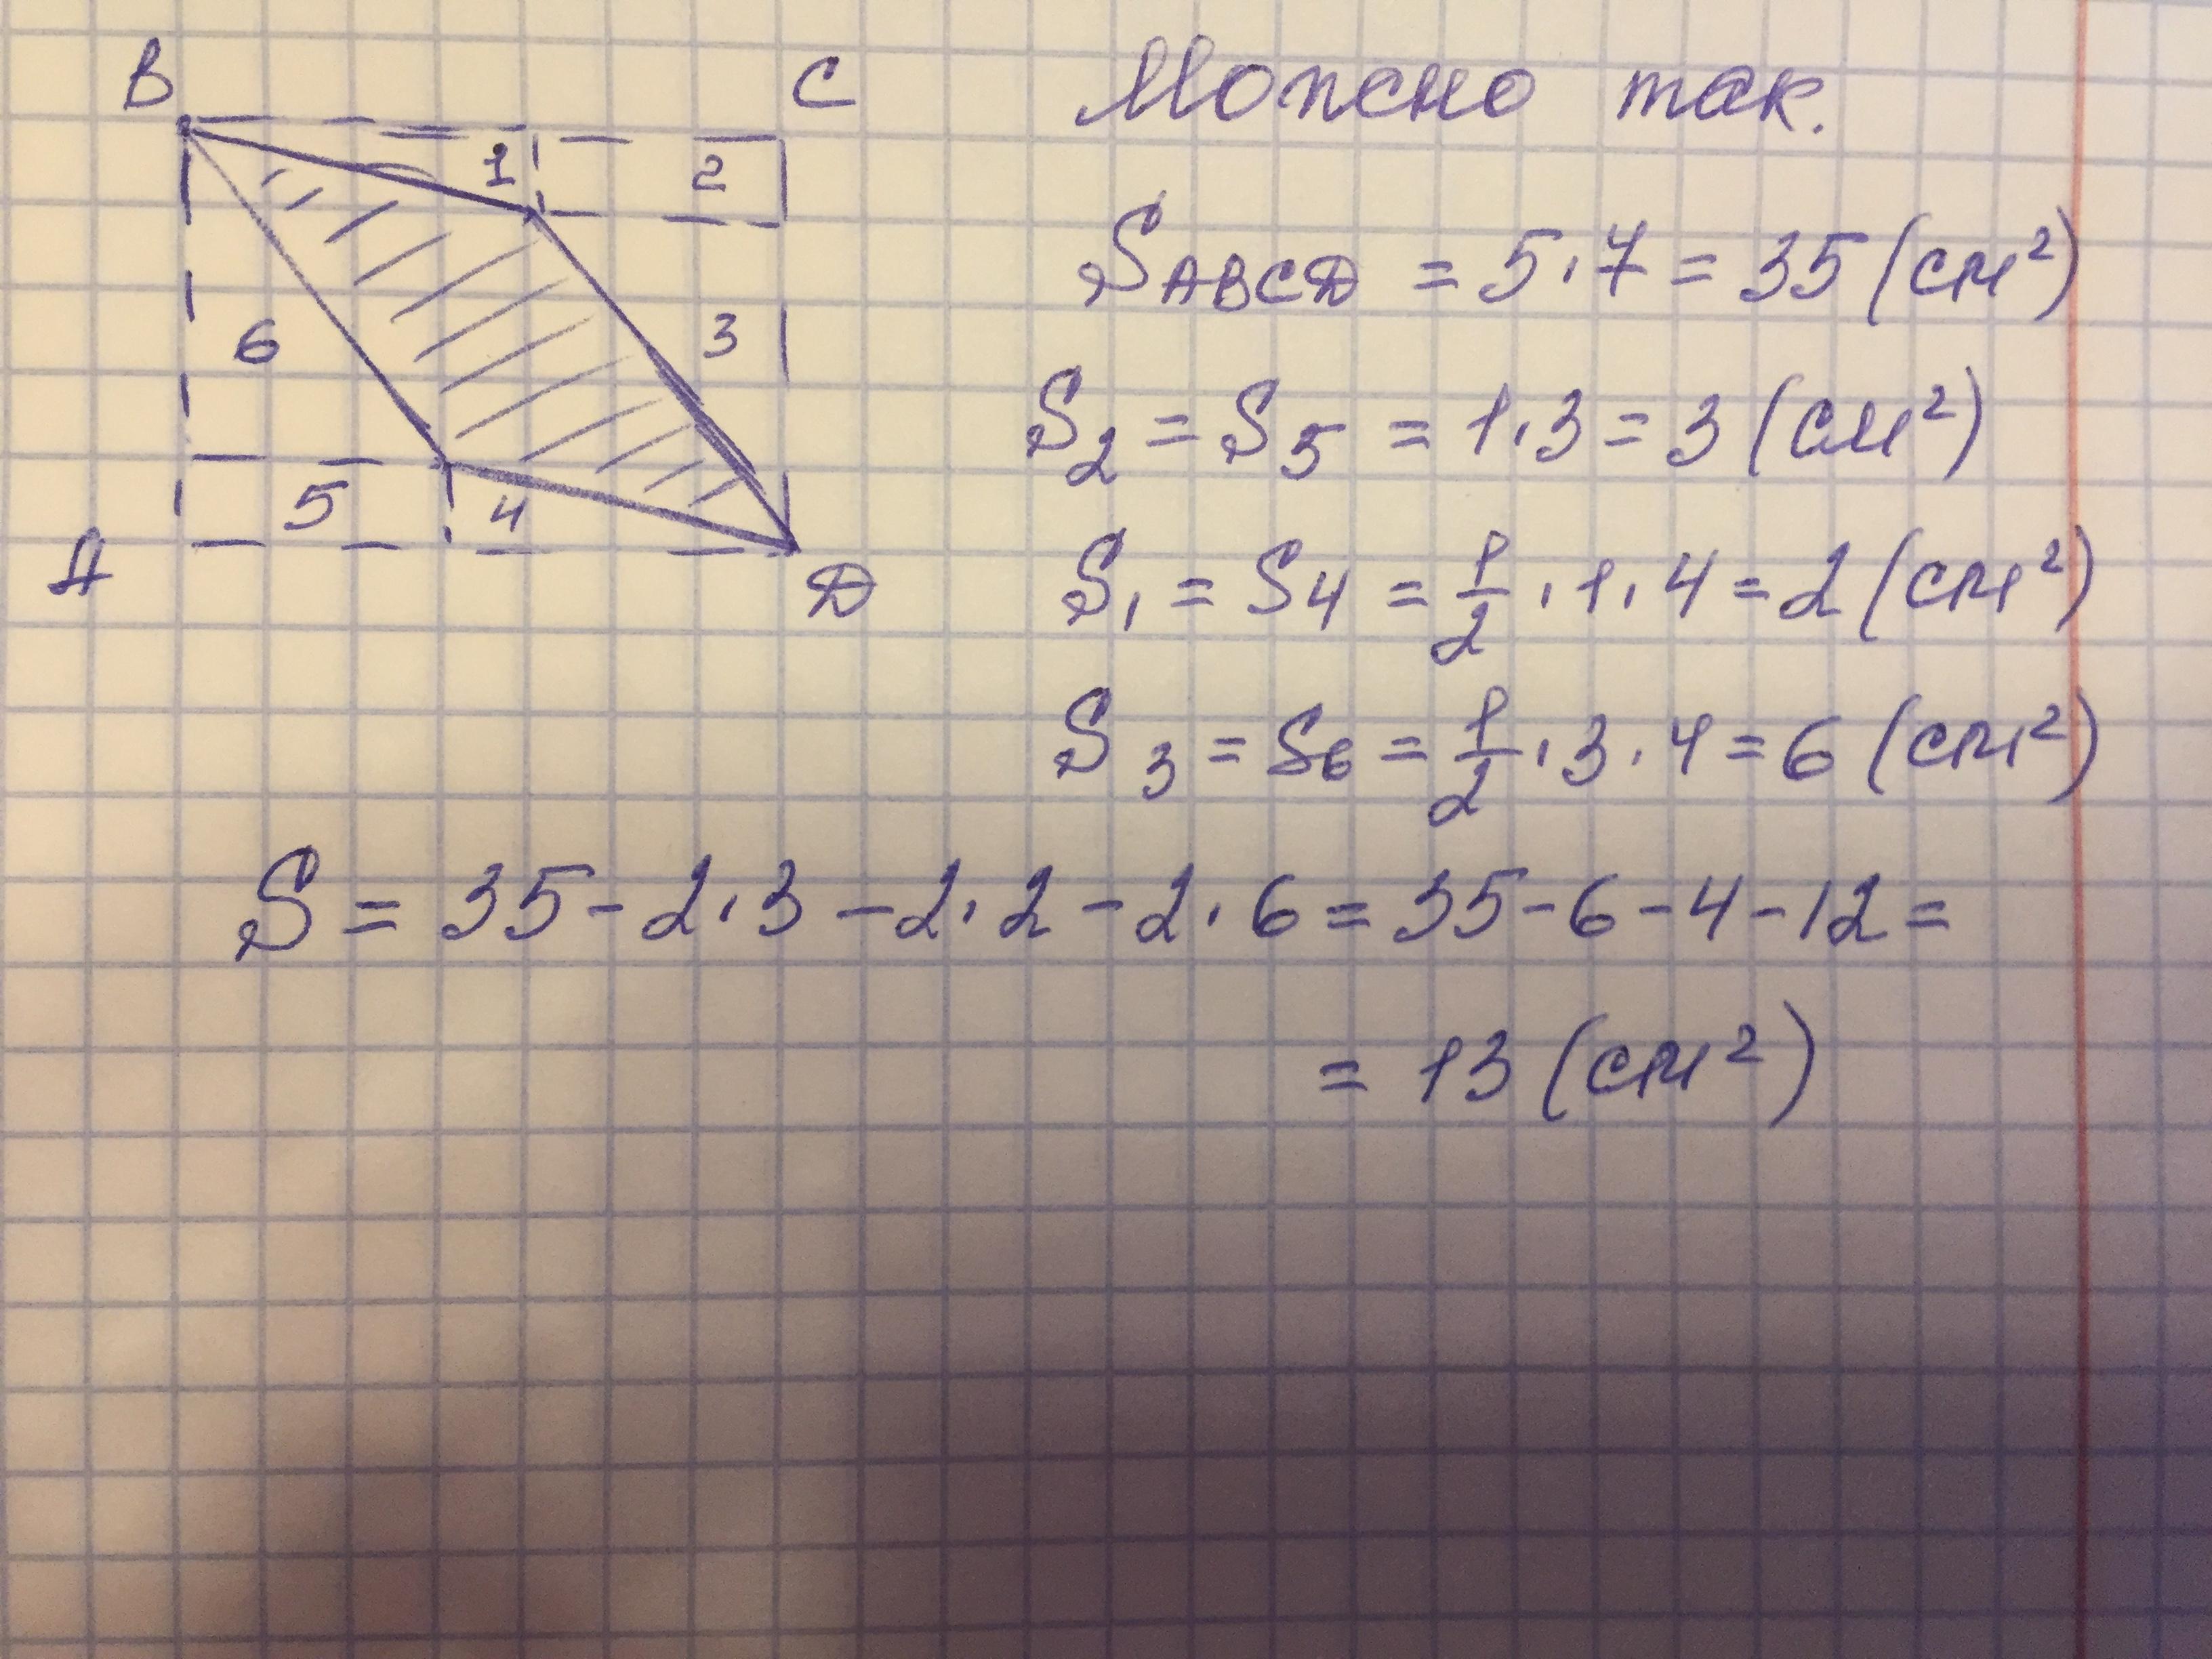 B
C
Можно так.
1
2
S_ABCD = 5·7 = 35 (см²)
6
3
S₂ = S₅ = 1·3 = 3 (см²)
5
4
A
D
S₁ = S₄ = 1/2 · 1 · 4 = 2 (см²)
S₃ = S₆ = 1/2 · 3 · 4 = 6 (см²)
S = 35 - 2·3 - 2·2 - 2·6 = 35 - 6 - 4 - 12 =
= 13 (см²)